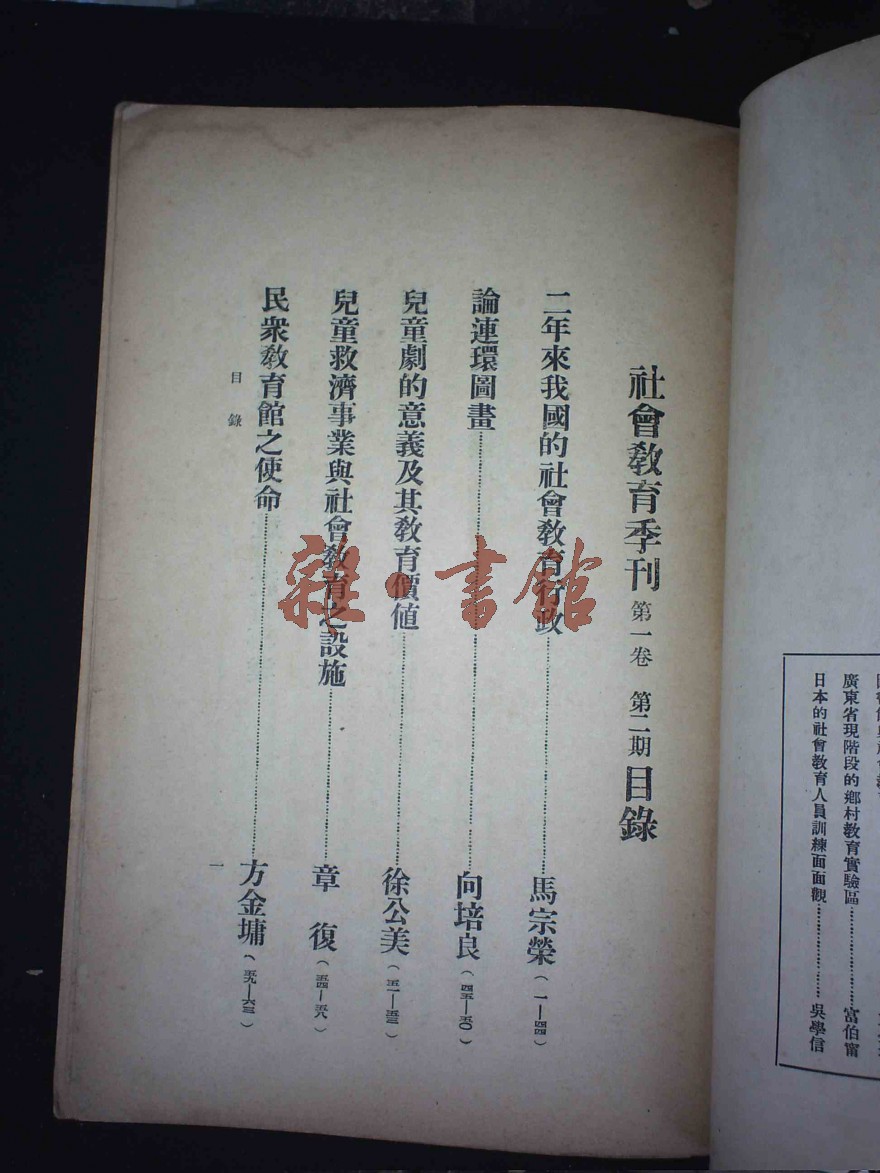 廣東省現階段的鄉村教育實驗區…………富伯甯
日本的社會教育人員訓練面面觀…………吳學信
社會教育季刊 第一卷 第二期 目錄
二年來我國的社會教育行政…………馬宗榮(一—四四)
論連環圖畫…………向培良(四五—五〇)
兒童劇的意義及其教育價值…………徐公美(五一—五三)
兒童救濟事業與社會教育之設施…………章復(五四—五八)
民衆教育館之使命…………方金墉(五九—六三)
目錄
一
雜·書館